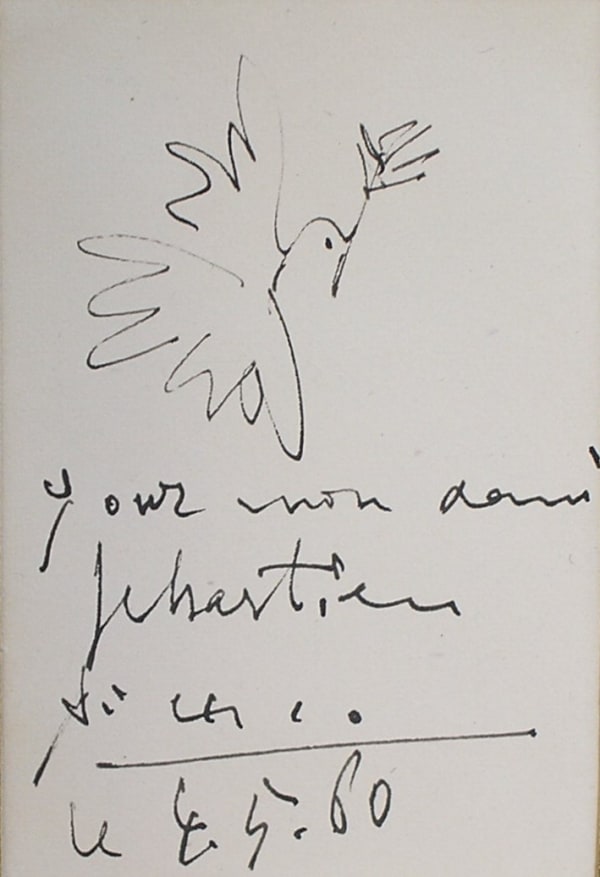 pour mon ami
Sebastien
Picasso
le 4.5.60